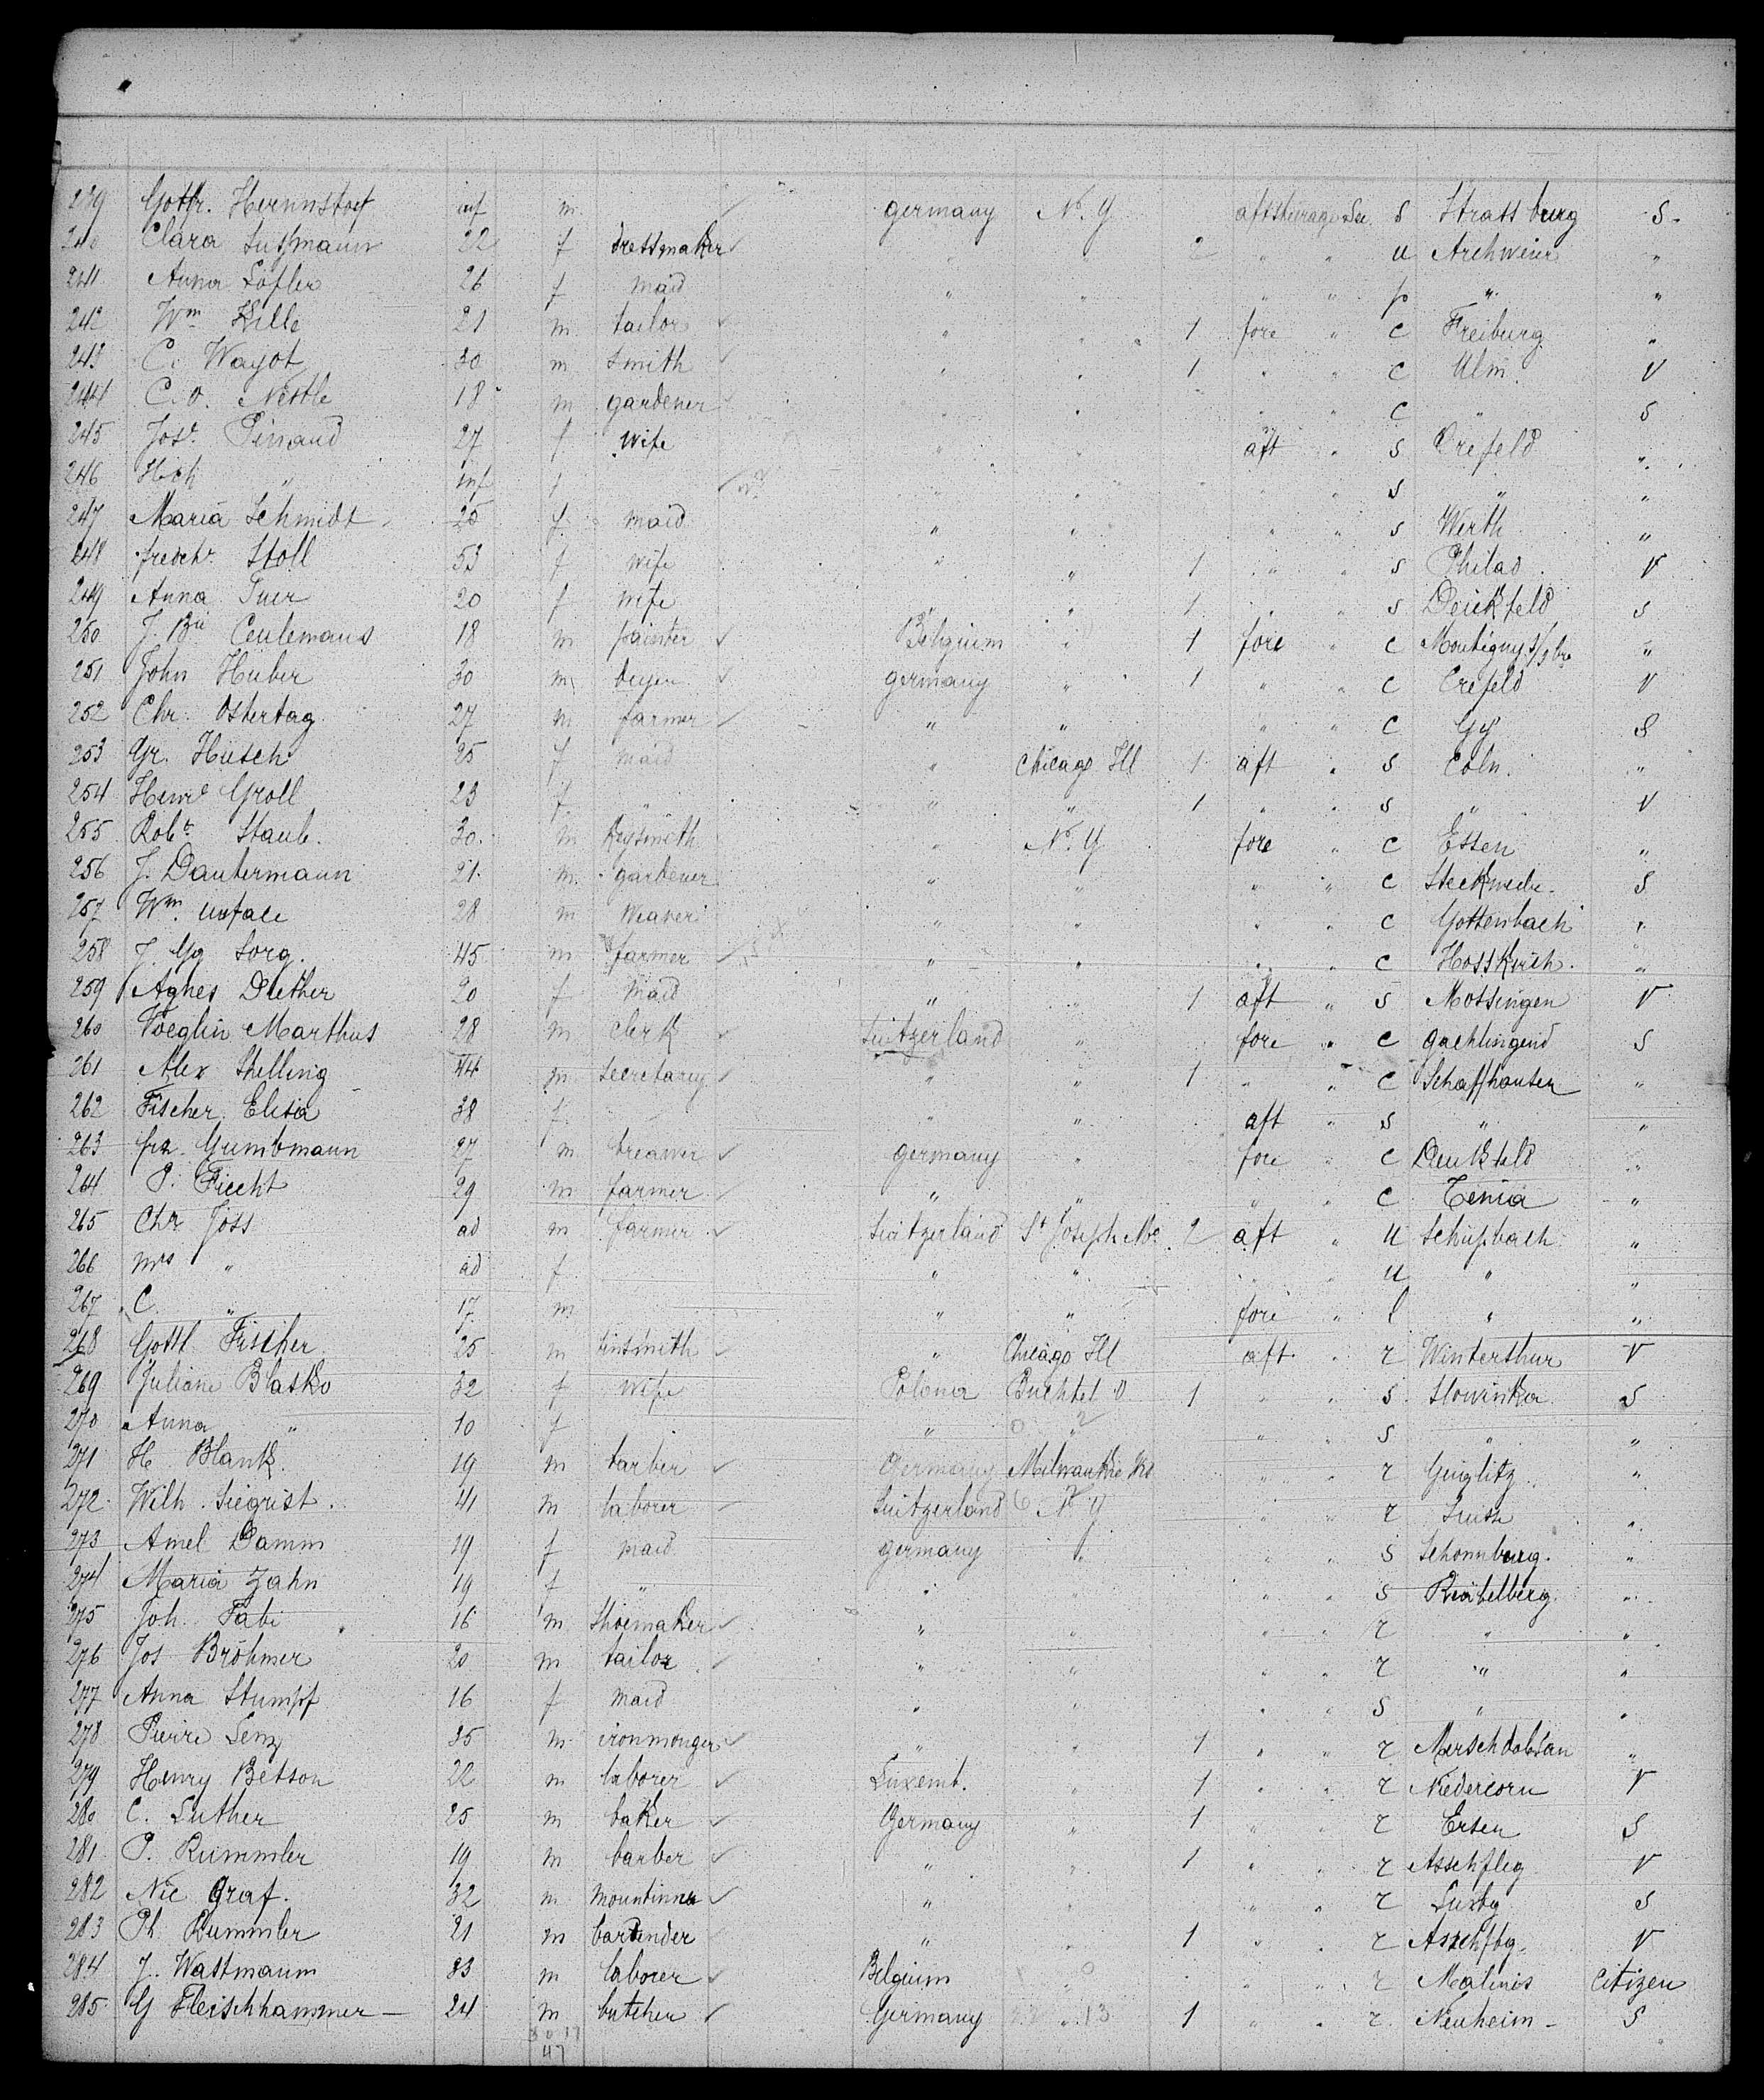 239 Gottfr. Hernnstorf inf m. germany N. Y aftsteerage See. S Strassburg S.
240 Clara Sussmann 22 f dressmaker " " 2 " " u Archweier "
241 Anna Löfler 26 f maid " " " " p " "
242 Wm Kille 21 m. tailor " " 1 fore " c Freiburg "
243 C. Wayot 30 m smith " " 1 " " c Ulm. V
244 C. O. Nestle 18 m gardener " " " " c " S
245 Jos. Pinaud 27 f wife " " aft " S Crefeld "
246 Hch " inf f " " " " S " "
247 Maria Schmidt 25 f. maid " " " " S Werth "
248 fredch. Stoll 53 f wife " " 1 " " S Philad. V
249 Anna 20 f wife " " 1 " " S Deickfeld S
250 J. Bti Ceulemans 18 m painter Belgium " 1 fore " c Montigny s/ "
251 John Huber 30 m germany " 1 " " c Crefeld V
252 Chr. Ostertag 27 m farmer " " " " c Gy S
253 Gr. Hüsch 25 f maid " Chicago Ill 1 aft " S Coln. "
254 Henr. Groll 23 f " " " 1 " " S " V
255 Robt Staub. 30. m Keysmith " N. Y fore " c Essen "
256 J. Dautermann 21. m. gardener " " " " c S
257 Wm. 28 m Weaver " " " " c Gottenbach "
258 J. Gg Sorg. 45 m farmer " " " " c Hosskirch. "
259 Agnes Diether 20 f Maid " " 1 aft " S Mössingen V
260 Voeglin Marthus 28 m Clerk Switzerland " fore " c Gachlingend S
261 Alex Shelling 44 m. Secretary " " 1 " " c Schaffhausen "
262 Fischer Elisa 38 f. " " aft " S " "
263 frz. Gumbmann 27 m breawer germany " fore " c "
264 P. Fiecht 29 m farmer " " " " c Tenia "
265 Chr Joss ad m farmer Switzerland St Joseph Mo. 2 aft " U Schupbach "
266 Mrs " ad f " " " " U " "
267 C. " 17 m " " fore " l " "
268 Gottl. Fischer 25 m tinsmith " Chicago Ill aft " r Winterthur V
269 Juliane Blasko 32 f Wife Polona Buchtel O 1 " " S. Slowinka S
270 Anna " 10 f " " " " S " "
271 H. Blank. 19 m barber Germany Milwaukie " " r "
272. Wilh. Siegrist. 41 m laborer Switzerland N. Y " " r "
273 Amel Damm 19 f maid. germany " " " S Schonnburg. "
274 Maria Zahn 19 f " " " " " S "
275 Joh. Fabi 16 m Shoemaker " " " " r " "
276 Jos Bröhmer 20 m tailor " " " " r " "
277 Anna Stumpf 16 f maid " " " " S " "
278 Pierre Lenz 35 m ironmonger " " 1 " " r "
279 Henry Betson 22 m laborer Luxemb. " 1 " " r Niedercorn V
280 C. Luther 25 m baker Germany " 1 " " r Ersen S
281 P. Rümmler 19 m barber " " 1 " " r V
282 Nic Graf. 32 m " " " " r Luxbg S
283 Ph. Rummler 21 m bartender " " 1 " " r Aschfbg. V
284 J. Wastmann 33 m laborer Belgium " " " r Malines Citizen
285. G Fleischhammer 24 m butcher Germany " 13 1 " " r. Neuheim S
47